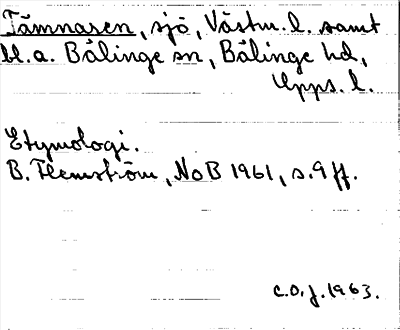 Tämnaren, sjö, Västm. l. samt
bl.a. Bälinge sn, Bälinge hd,
Upps. l.
Etymologi.
B. Flemström, NoB 1961, s. 9 ff.
C.O.J. 1963.